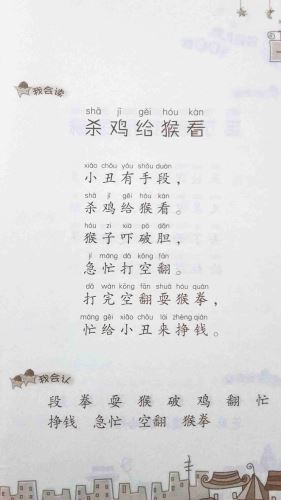 我会读
shā jī gěi hóu kàn
杀鸡给猴看
xiǎo chǒu yǒu shǒu duàn
小丑有手段，
shā jī gěi hóu kàn
杀鸡给猴看。
hóu zi xià pò dǎn
猴子吓破胆，
jí máng dǎ kōng fān
急忙打空翻。
dǎ wán kōng fān shuǎ hóu quán
打完空翻耍猴拳，
máng gěi xiǎo chǒu lái zhèng qián
忙给小丑来挣钱。
我会认
段 拳 耍 猴 破 鸡 翻 忙
挣钱 急忙 空翻 猴拳